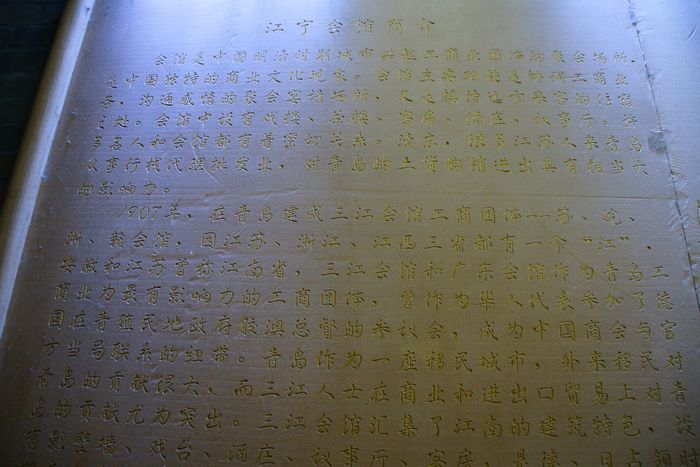 江宁会馆简介
会馆是中国明清时期城市共起工商业团体的聚会场所,
是中国独特的商业文化现象。会馆主要功能是协调工商业
务、沟通感情的聚会宴请场所,又是接待远方来客的住宿
之处。会馆中设有戏楼、茶楼、客房、酒庄、议事厅。许
多名人和会馆都有着密切关系。清末,很多江苏人来青岛
从事行栈代理批发业,对青岛的土货购销进出具有相当大
的影响力。
1907年,在青岛建成三江会馆工商团体--苏、皖、
浙、赣会馆,因江苏、浙江、江西三省都有一个“江”,
安徽和江苏曾称江南省,三江会馆和广东会馆作为青岛工
商业为最有影响力的工商团体,曾作为华人代表参加了德
国在青殖民地政府般澳总督的参议会,成为中国商会与官
方当局联系的纽带。青岛作为一座移民城市,外来移民对
青岛的贡献很大,而三江人士在商业和进出口贸易上对青
岛的贡献尤为突出。三江会馆汇集了江南的建筑特色,设
有影壁墙、戏台、酒庄、议事厅、客房